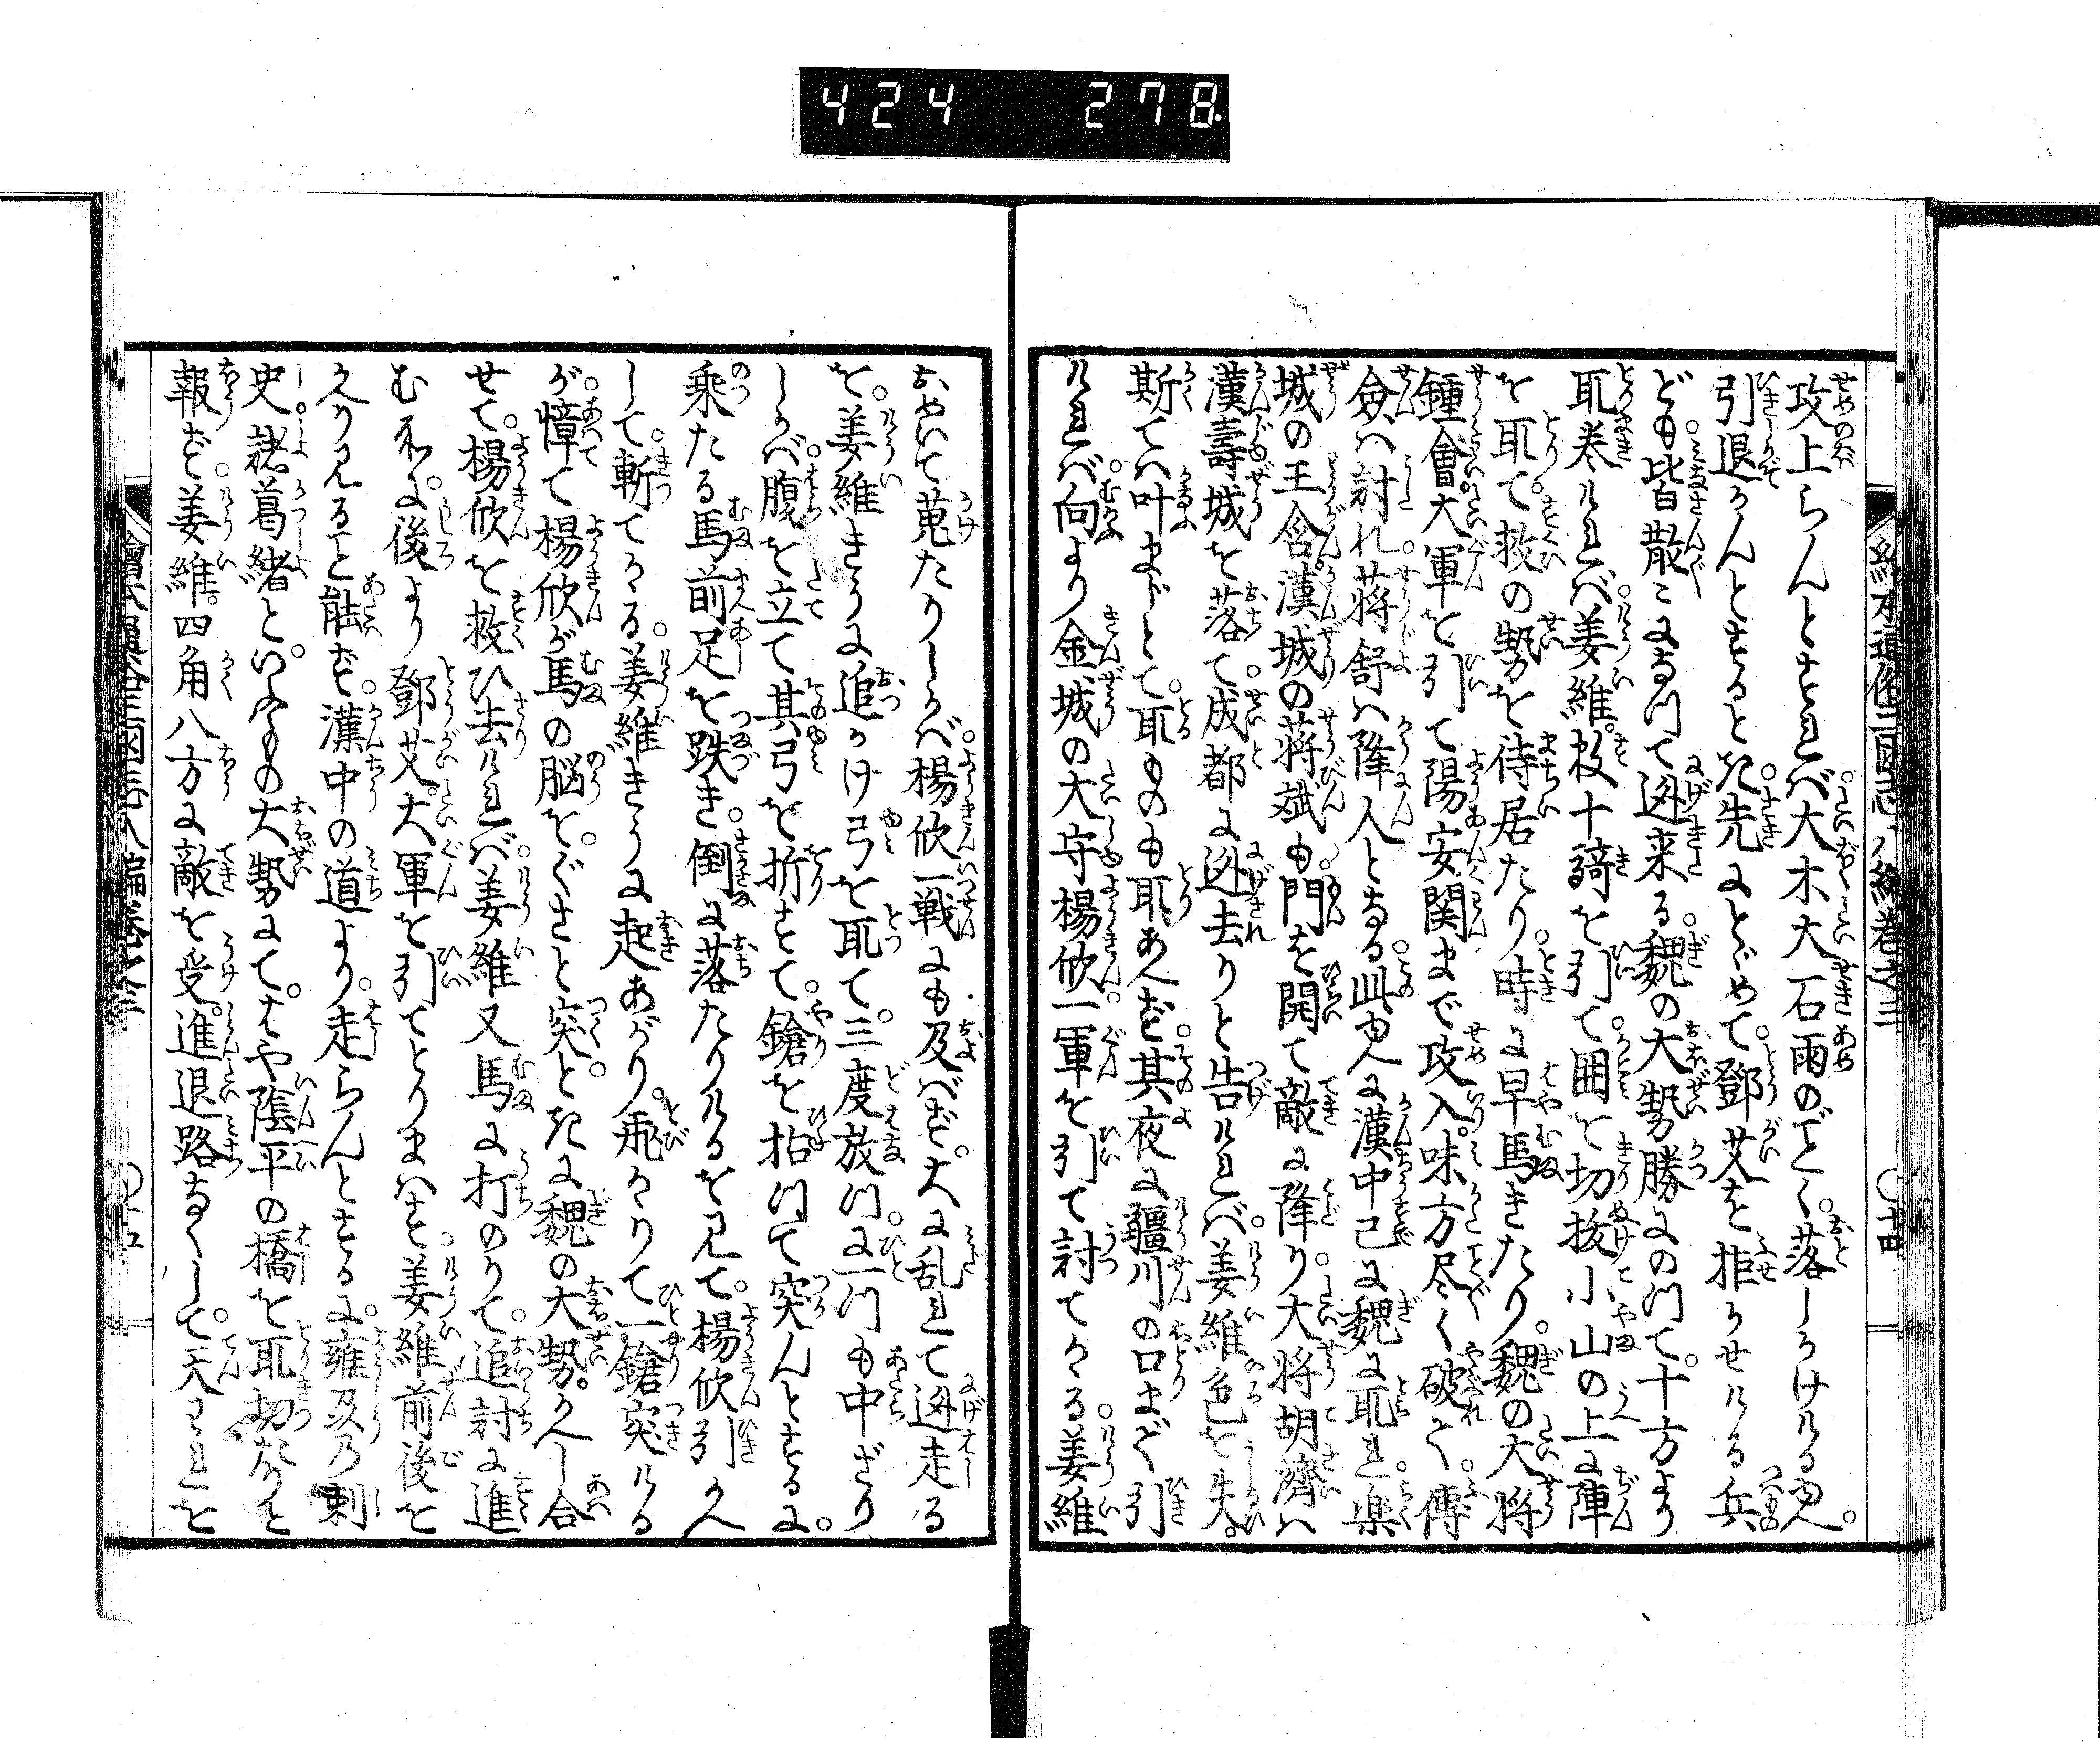 424 278
繪本通俗三國志八編卷之三 〇十四
攻上らんとすれバ大木大石雨のごとく。落しかけける由へ。
引退かんとするとき先にとゞめて。鄧艾を拒かせける兵
ども。皆散〻になつて迯来る。魏の大勢勝にのつて。十方より
取巻ければ。姜維。数十騎を引て。囲を切抜て小山の上に陣
を取て。救の勢を待居たり。時に早馬きたり。魏の大将
鍾會。大軍を引て陽安関まで攻入。味方尽く破て。傅
僉ハ討れ。蒋舒ハ降人となる。此由へに漢中已に魏に取れ。楽
城の王含。漢城の蒋斌も。門を開て敵に降り。大将胡濟ハ
漢壽城を落て。成都に迯去りと告ければ。姜維色を失。
斯てハ叶まじとて。取ものも取あへず。其夜に疆川の口まで引
ければ。向より金城の大守楊欣。一軍を引て討てかゝる。姜維
おめいて蒐たりしかバ。楊欣一戦にも及バず。大に乱れて迯走る
を。姜維きうに追かけ弓を取て。三度放つに。一つも中ざり
しかバ。腹を立て其弓を折すて。鎗を拈つて突んとするに。
乗たる馬前足を跌き。倒に落たりけるを見て。楊欣引かへ
して。斬てかゝる。姜維きうに起あがり。飛かゝりて一鎗突ける
が。悼て楊欣が馬の脳を。ぐさと突。ときに魏の大勢。かへし合
せて。楊欣を救ひ去ければ。姜維又馬に打のりて。追討に進
む処に後より鄧艾。大軍を引てとりまハす。姜維前後を
かへり見ること能ず。漢中の道より。走らんとするに。雍州の刺
史。諸葛緒と。いふもの大勢にて。はや陰平の橋を取切たりと
報ず。姜維。四角八方に敵を受。進退路なくして。天われを
繪本通俗三國志八編卷之三 〇十五